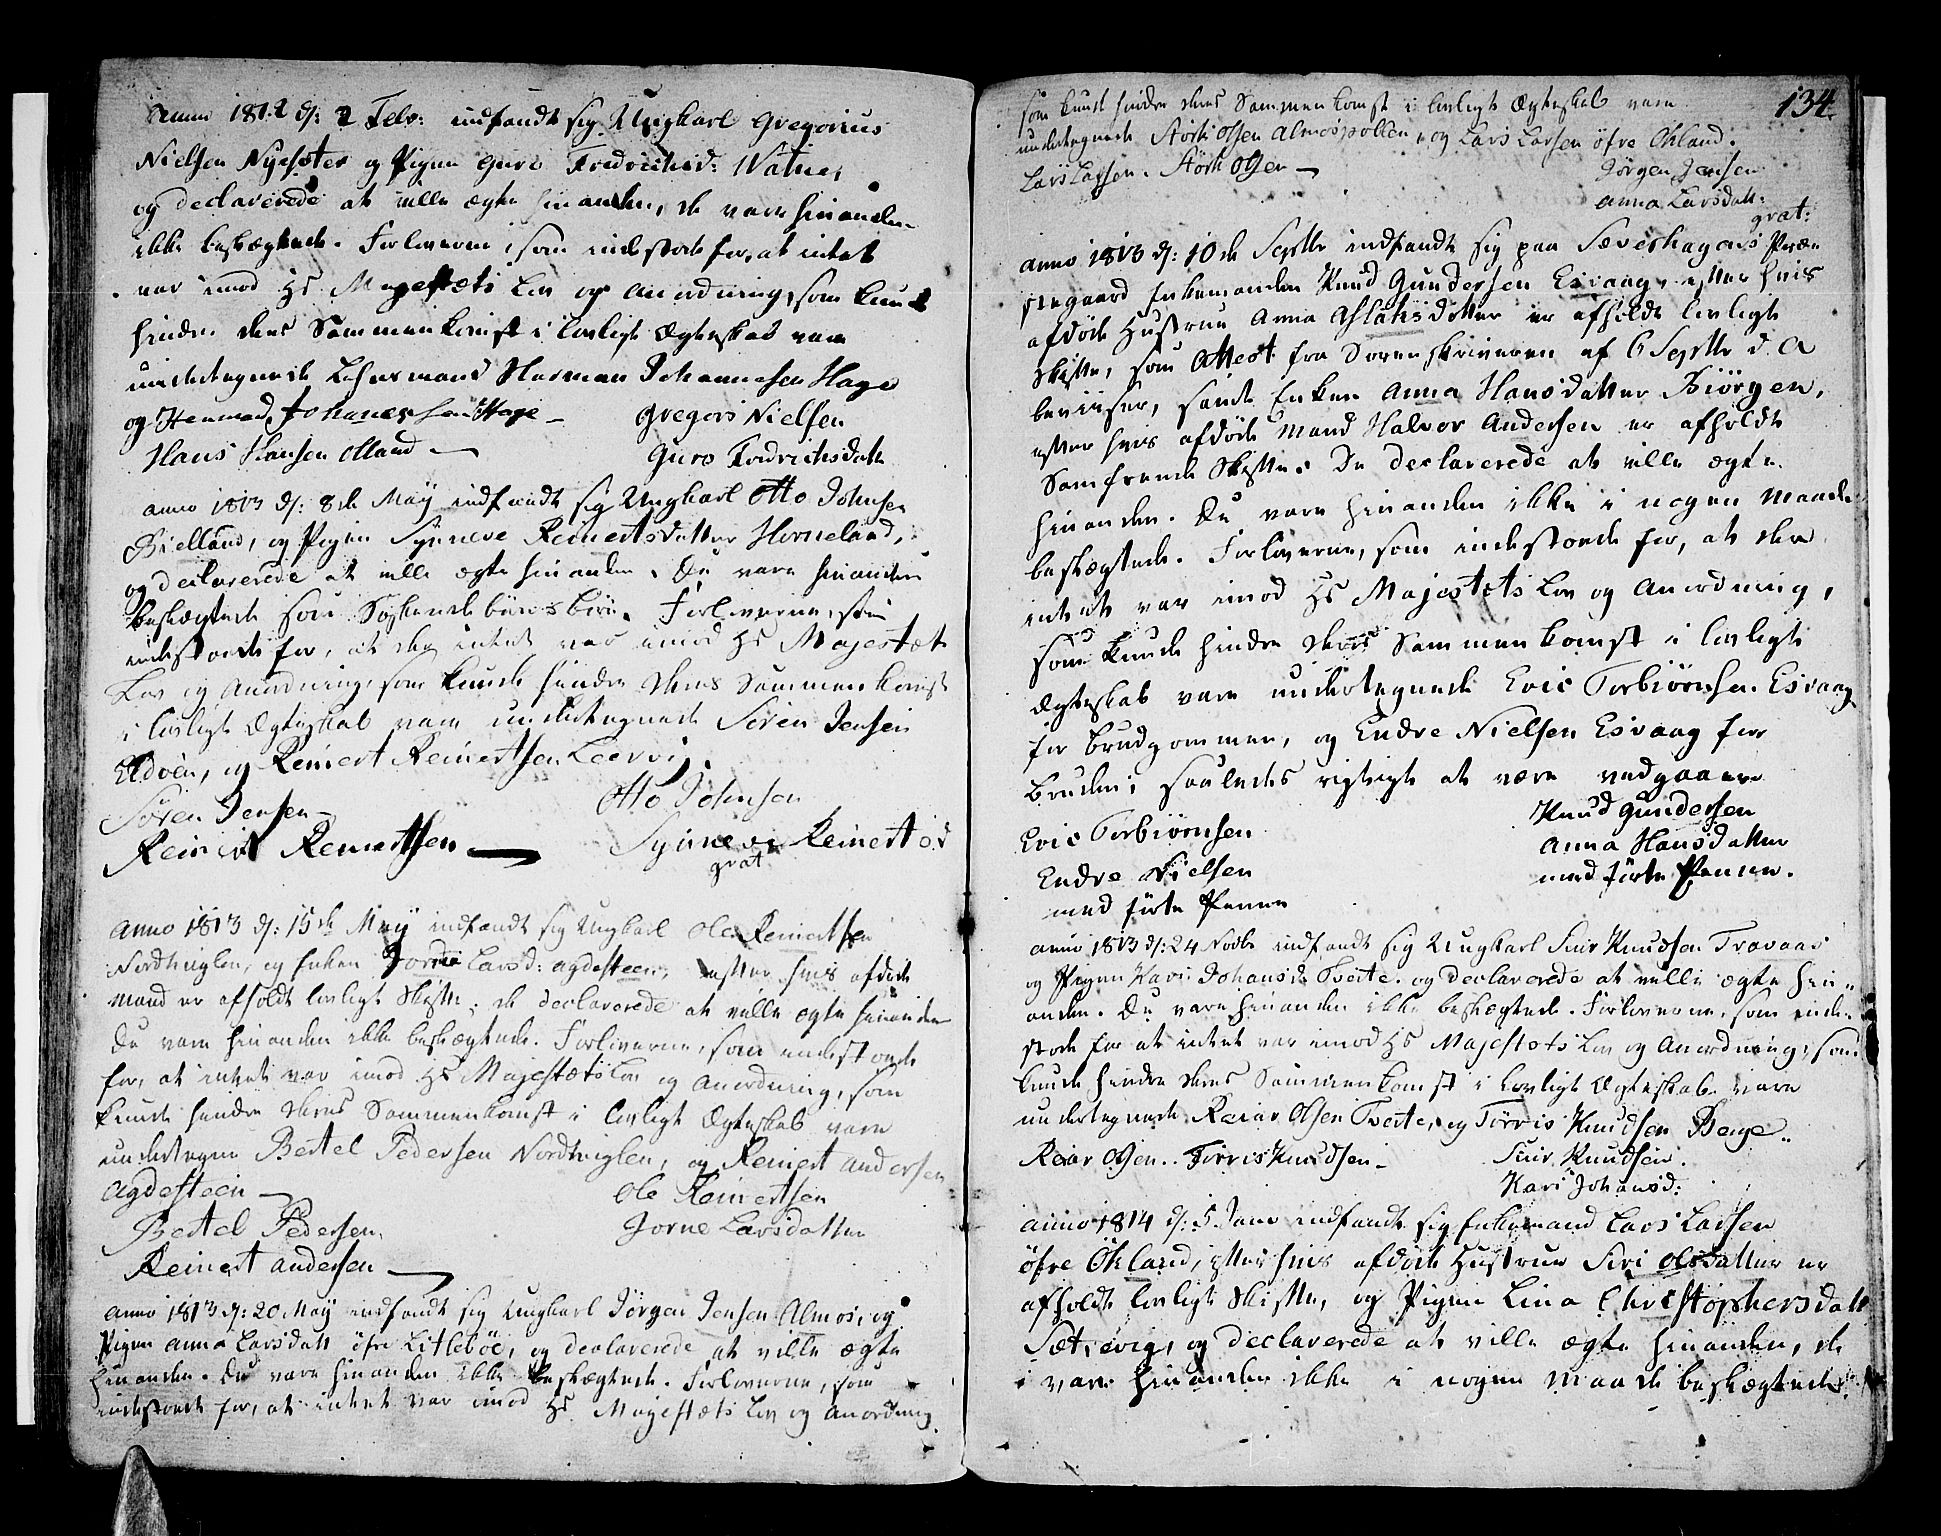 Anno 1812 d: 2 Febr: indfandt sig Ungkarl Gregorius
Nielsen Nysæter og Pigen Guro Fredrichsd: Watne,
og declarerede at ville ægte hinanden, de vare hinanden
ikke beslægtede. Forloverne, som indestode for, at intet
var imod Hs Majestæts Lov og Anordning, som kunde
hindre deres Sammenkomst i lovligt Ægteskab vare
undertegnede Lehnsmand Herman Johannesen Hage
og Hermand Johanessen Hage
Gregori Nielsen
Hans Hansen
Guro Fredrichsdatt
anno 1813 d: 8de May indfandt sig Ungkarl Otto Johnsen
Bielland, og Pigen Synneve Reinertsdatter Horneland,
og declarerede at ville ægte hinanden. De vare hinanden
beslægtede som Søskendebørnsbørn. Forloverne, som
indestode for, at der intet var imod Hs Majestæts
Lov og Anordning, som kunde hindre deres Sammenkomst
i lovligt Ægteskab vare undertegnede Søren Jensen
Eldøen, og Reinert Reinertsen Leervig.
Søren Jensen
Otto Johnsen
Reinert Reinertsen
Synneve Reinertsd
grat
Anno 1813 d: 15de May indfandt sig Ungkarl Ole Reinertsen
Nordhuglen, og Enken Jorne Larsd: Agdesteen, efter hvis afdøde
Mand er afholdt lovligt Skifte; de declarerede at ville ægte hinanden
De vare hinanden ikke beslægtede. Forloverne, som indestode
for, at intet var imod Hs Majestæts Lov og Anordning, som
kunde hindre deres Sammenkomst i lovligt Ægteskab vare
undertegne Bertel Pedersen Nordhuglen, og Reinert Andersen
Agdesteen
Ole Reinertsen
Bertel Pedersen
Jorne Larsdatter
Reinert Andersen
Anno 1813 d: 20 May indfandt sig Ungkarl Jörgen Jensen Almos, og
Pigen Anna Larsdatt öfre Litleböe, og declarerede at ville ægte
hinanden. De vare hinanden ikke beslægtede. Forloverne, som
indestode for, at intet var imod Hs Majestæts Lov og Anordning,
134.
som kunde hindre deres Sammenkomst i lovligt Ægteskab vare
undertegnede Störk Olsen Almospollen, og Lars Larsen öfre Ökland.
Lars Larsen. Störk Olsen
Jörgen Jensen
Anna Larsdatt:
grat:
anno 1813 d: 10de Septbr indfandt sig paa Præ-
stegaard Enkemanden Knud Gundersen Esvaag, efter hvis
afdöde Hustrue Anna Aslaksdatter er afholdt lovligt
Skifte, som Attest fra Sorenskriveren af 6 Septbr d. A
beviser, samt Enken Anna Hansdatter Biörgen,
efter hvis afdöde Mand Halvor Andersen er afholdt
Samfrende Skifte. De declarerede at ville ægte
hinanden. De vare hinanden ikke i nogen Maade
beslægtede. Forloverne, som indestode for, at der
intet var imod Hs Majestæts Lov og Anordning,
som kunde hindre deres Sammenkomst i lovligt
Ægteskab vare undertegnede Eric Torbiörnsen Esvaag
for Brudgommen, og Endre Nielsen Esvaag for
Bruden; saaledes rigtigt at være vedgaaer
Knud Gundersen
Eric Torbiörnsen
Anna Hansdatter
Endre Nielsen
med förte Penne.
med förte Penne
anno 1813 d: 24 Novbr indfandt sig Ungkarl Knudsen Travaas
og Pigen Kari Johansd: Tveite. og declarerede at ville ægte hin-
anden. De vare hinanden ikke beslægtede. Forloverne, som inde-
stode for at intet var imod Hs Majestæts Lov og Anordning, som
kunde hindre deres Sammenkomst i lovligt Ægteskab vare
undertegnede Reiar Olsen Tveite, og Törris Knudsen Berge.
Reiar Olsen. Törris Knudsen
Knudsen.
Kari Johansd:
anno 1814 d: 5 Janv indfandt sig Enkemand Lars Larsen
öfre Ökland, efter hvis afdöde Hustrue Siri Olsdatter er
afholdt lovligt Skifte, og Pigen Lina Christophersdatt
Sætrevig, og declarerede at ville ægte hinanden, de
vare hinanden ikke i nogen Maade beslægtede.